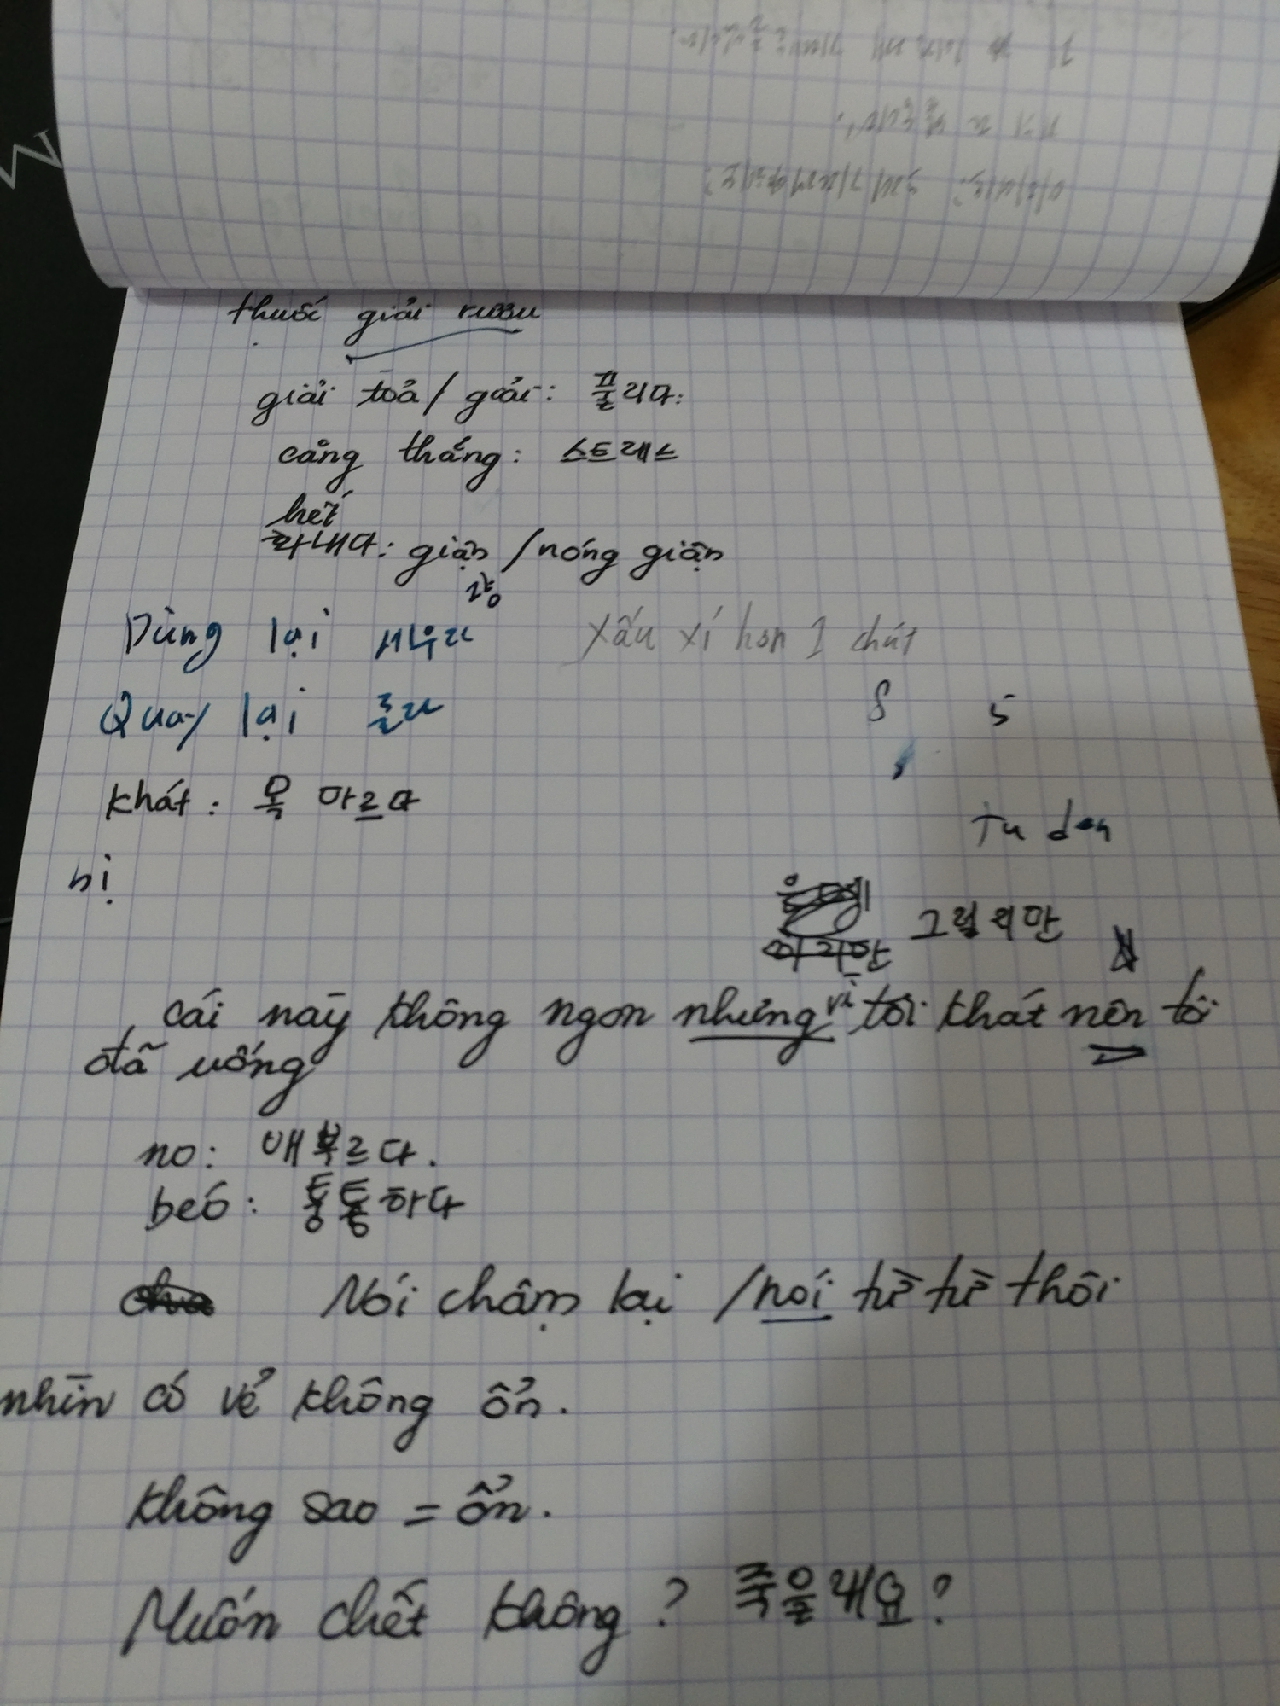 thuốc giải rượu
giải toả / giải: 풀리다.
căng thẳng: 스트레스
hết
화내다: giận / nóng giận
Dừng lại 세우다
xấu xí hơn 1 chút
Quay lại 돌다
8 5
khát: 목 마르다
tu den
bị
그렇지만
cái này không ngon nhưng vì tôi khát nên tôi
đã uống
no: 배부르다.
beó: 통통하다
Nói chậm lại / nói từ từ thôi
nhìn có vẻ không ổn.
không sao = ổn.
Muốn chết không? 죽을래요?